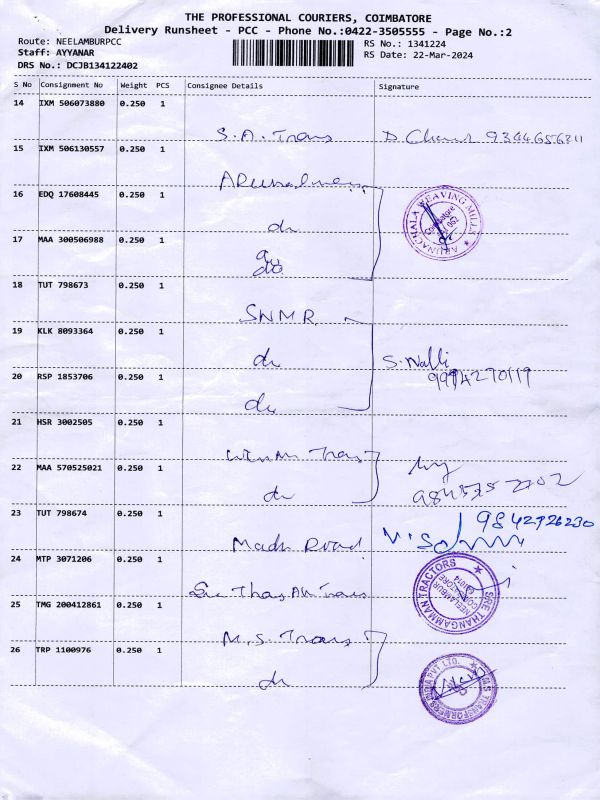 THE PROFESSIONAL COURIERS, COIMBATORE
Delivery Runsheet - PCC - Phone No.:0422-3505555 - Page No.:2
Route: NEELAMBURPCC RS No.: 1341224
Staff: AYYANAR RS Date: 22-Mar-2024
DRS No.: DCJB134122402
S No Consignment No Weight PCS Consignee Details Signature
14 IXM 506073880 0.250 1
S. A. Trans
15 IXM 506130557 0.250 1
16 EDQ 17608445 0.250 1
ARUNACHALA WEAVING MILLS
Coimbatore
17 MAA 300506988 0.250 1
do
18 TUT 798673 0.250 1
SNMR
19 KLK 8093364 0.250 1
S. Nalli
20 RSP 1853706 0.250 1
21 HSR 3002505 0.250 1
Trans
22 MAA 570525021 0.250 1
23 TUT 798674 0.250 1
9842726230
Madh Road
24 MTP 3071206 0.250 1
SREE THANGAMMAN TRACTORS
NEELAMBUR
COIMBATORE
25 TMG 200412861 0.250 1
M. S. Trans
26 TRP 1100976 0.250 1